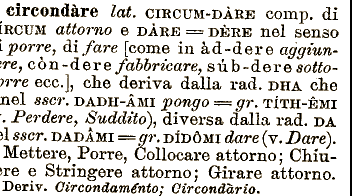 circondàre lat. CIRCUM-DÀRE comp. di
ÍRCUM attorno e DÀRE = DÈRE nel senso
i porre, di fare [come in àd-dere aggiun-
ere, còn-dere fabbricare, súb-dere sotto-
orre ecc.], che deriva dalla rad. DHA che
nel sscr. DADH-ÂMI pongo = gr. TÍTH-ÊMI
v. Perdere, Suddito), diversa dalla rad. DA
el sscr. DADÂMI = gr. DÍDÔMI dare (v. Dare).
Mettere, Porre, Collocare attorno; Chiu-
ere e Stringere attorno; Girare attorno.
Deriv. Circondaménto; Circondàrio.